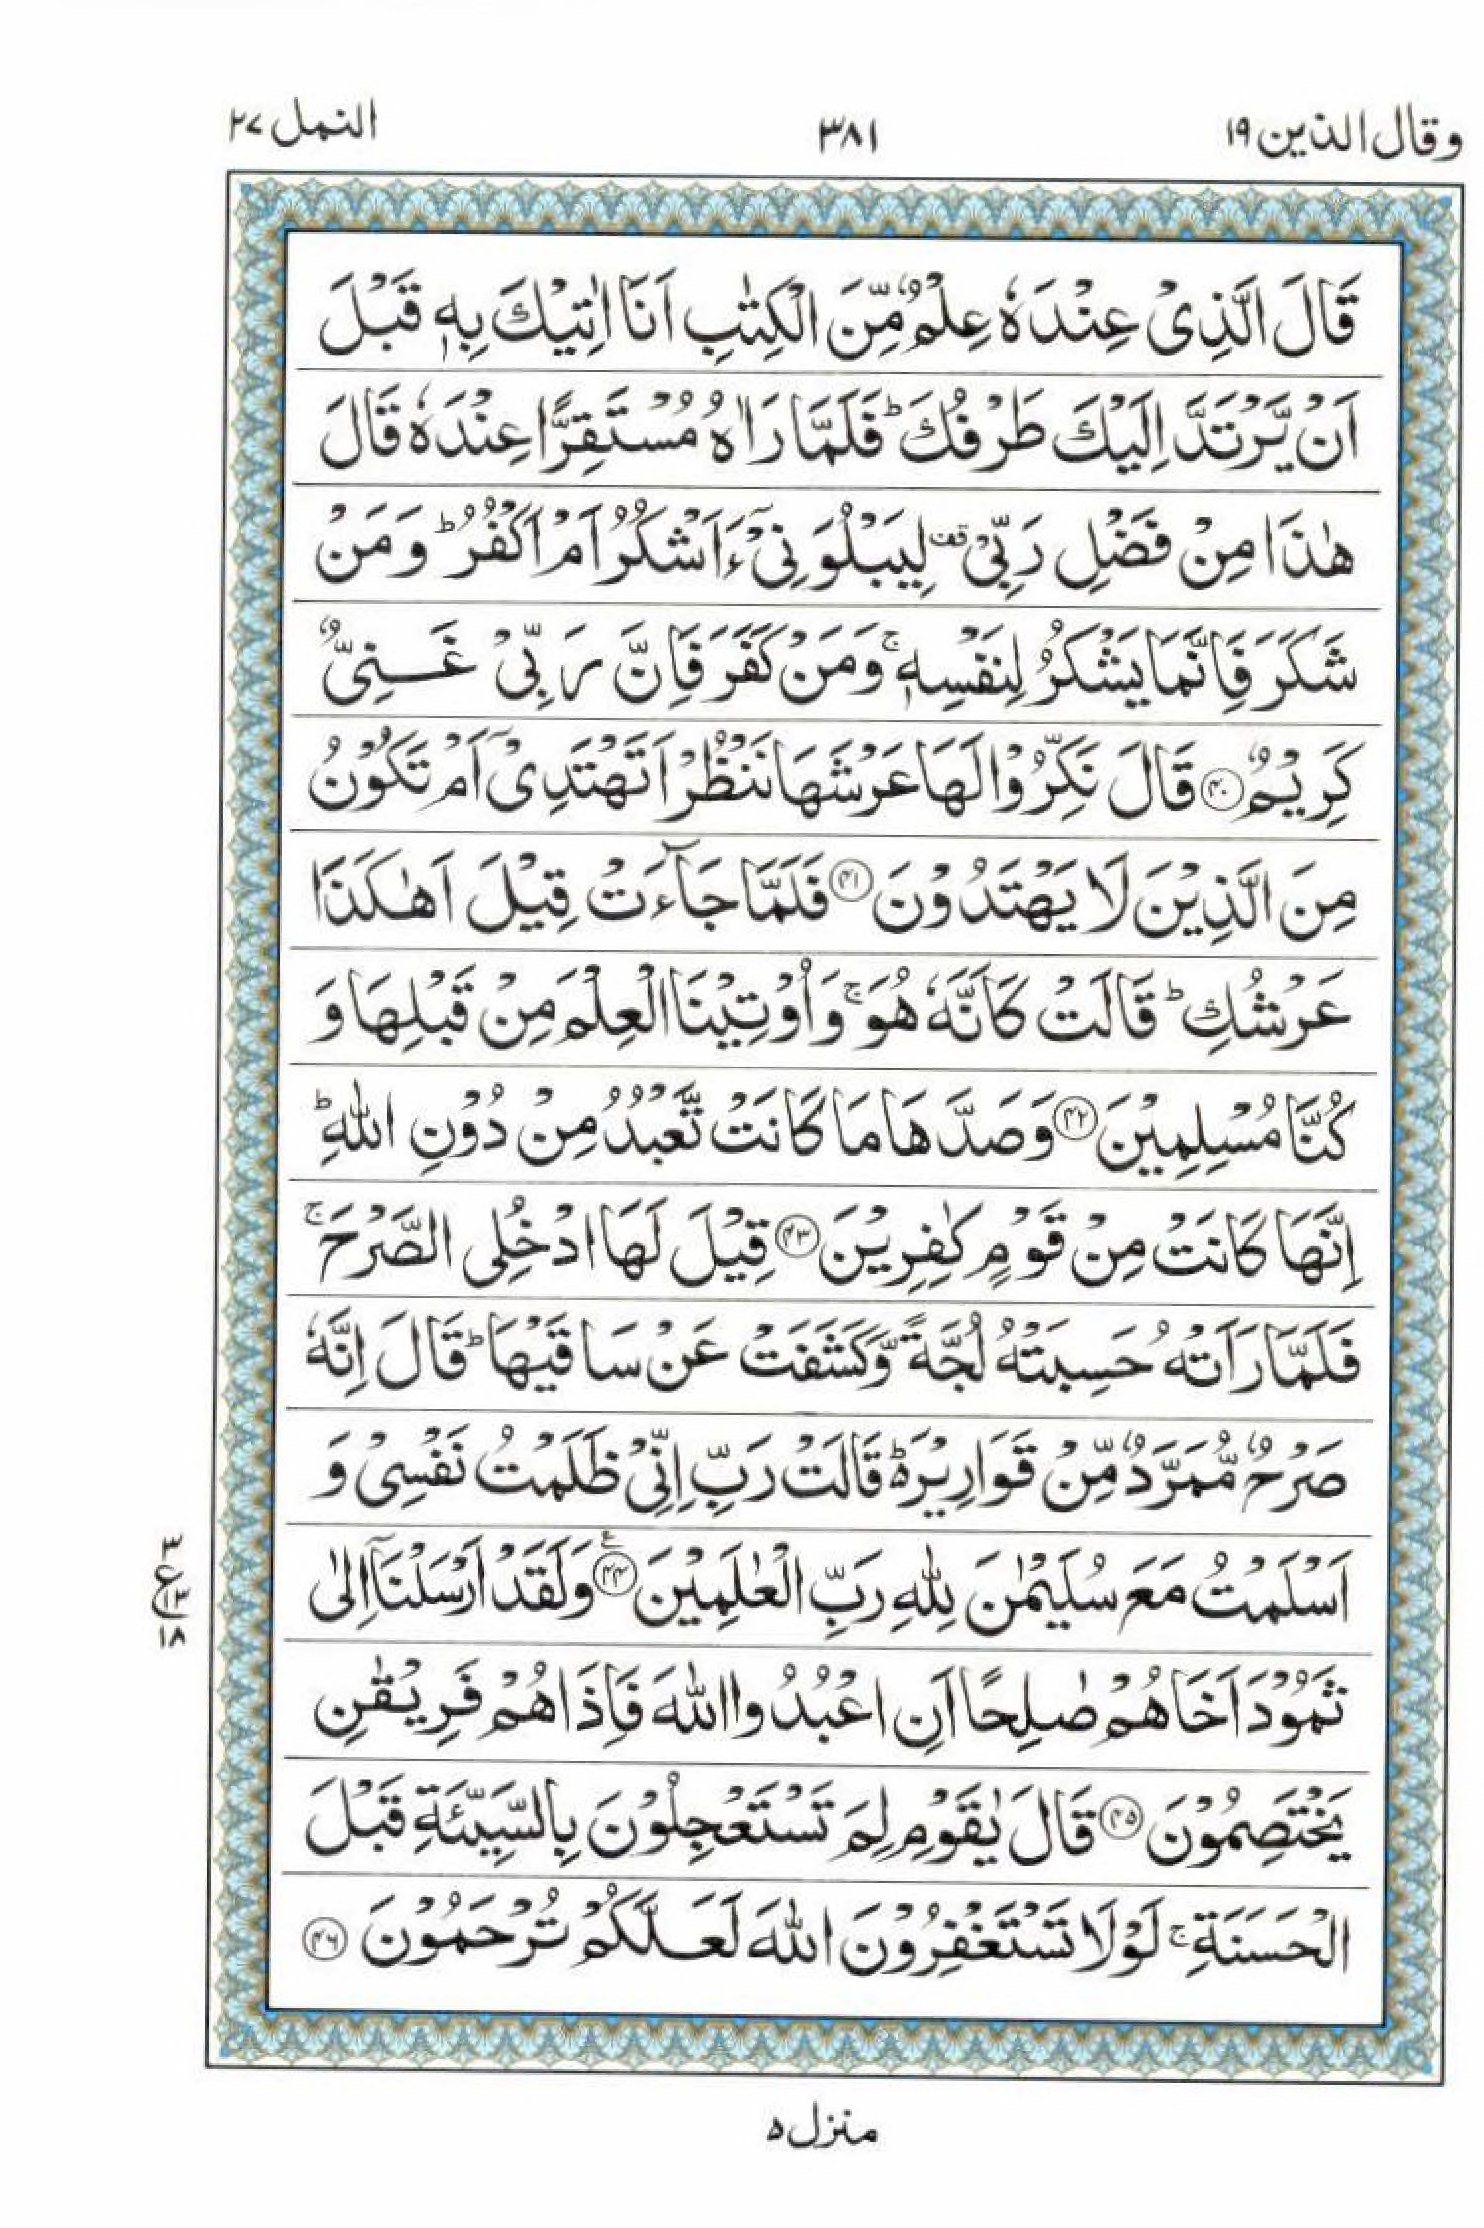 وقال الذين ١٩
٣٨١
النمل ٢٧
قَالَ الَّذِیْ عِنْدَهٗ عِلْمٌ مِّنَ الْكِتٰبِ اَنَا اٰتِیْكَ بِهٖ قَبْلَ
اَنْ یَّرْتَدَّ اِلَیْكَ طَرْفُكَ ؕ فَلَمَّا رَاٰهُ مُسْتَقِرًّا عِنْدَهٗ قَالَ
هٰذَا مِنْ فَضْلِ رَبِّیْ ۫ قف لِیَبْلُوَنِیْۤ ءَاَشْكُرُ اَمْ اَكْفُرُ ؕ وَ مَنْ
شَكَرَ فَاِنَّمَا یَشْكُرُ لِنَفْسِهٖ ۚ وَ مَنْ كَفَرَ فَاِنَّ رَبِّیْ غَنِیٌّ
كَرِیْمٌ ﴿۴۰﴾ قَالَ نَكِّرُوْا لَهَا عَرْشَهَا نَنْظُرْ اَتَهْتَدِیْۤ اَمْ تَكُوْنُ
مِنَ الَّذِیْنَ لَا یَهْتَدُوْنَ ﴿۴۱﴾ فَلَمَّا جَآءَتْ قِیْلَ اَهٰكَذَا
عَرْشُكِ ؕ قَالَتْ كَاَنَّهٗ هُوَ ۚ وَ اُوْتِیْنَا الْعِلْمَ مِنْ قَبْلِهَا وَ
كُنَّا مُسْلِمِیْنَ ﴿۴۲﴾ وَ صَدَّهَا مَا كَانَتْ تَّعْبُدُ مِنْ دُوْنِ اللّٰهِ ؕ
اِنَّهَا كَانَتْ مِنْ قَوْمٍ كٰفِرِیْنَ ﴿۴۳﴾ قِیْلَ لَهَا ادْخُلِی الصَّرْحَ ۚ
فَلَمَّا رَاَتْهُ حَسِبَتْهُ لُجَّةً وَّ كَشَفَتْ عَنْ سَاقَیْهَا ؕ قَالَ اِنَّهٗ
صَرْحٌ مُّمَرَّدٌ مِّنْ قَوَارِیْرَ ؕ۬ قَالَتْ رَبِّ اِنِّیْ ظَلَمْتُ نَفْسِیْ وَ
اَسْلَمْتُ مَعَ سُلَیْمٰنَ لِلّٰهِ رَبِّ الْعٰلَمِیْنَ ﴿۴۴﴾ ع وَ لَقَدْ اَرْسَلْنَاۤ اِلٰی
٣
ع
١٣
١٨
ثَمُوْدَ اَخَاهُمْ صٰلِحًا اَنِ اعْبُدُوا اللّٰهَ فَاِذَا هُمْ فَرِیْقٰنِ
یَخْتَصِمُوْنَ ﴿۴۵﴾ قَالَ یٰقَوْمِ لِمَ تَسْتَعْجِلُوْنَ بِالسَّیِّئَةِ قَبْلَ
الْحَسَنَةِ ۚ لَوْ لَا تَسْتَغْفِرُوْنَ اللّٰهَ لَعَلَّكُمْ تُرْحَمُوْنَ ﴿۴۶﴾
منزل ٥